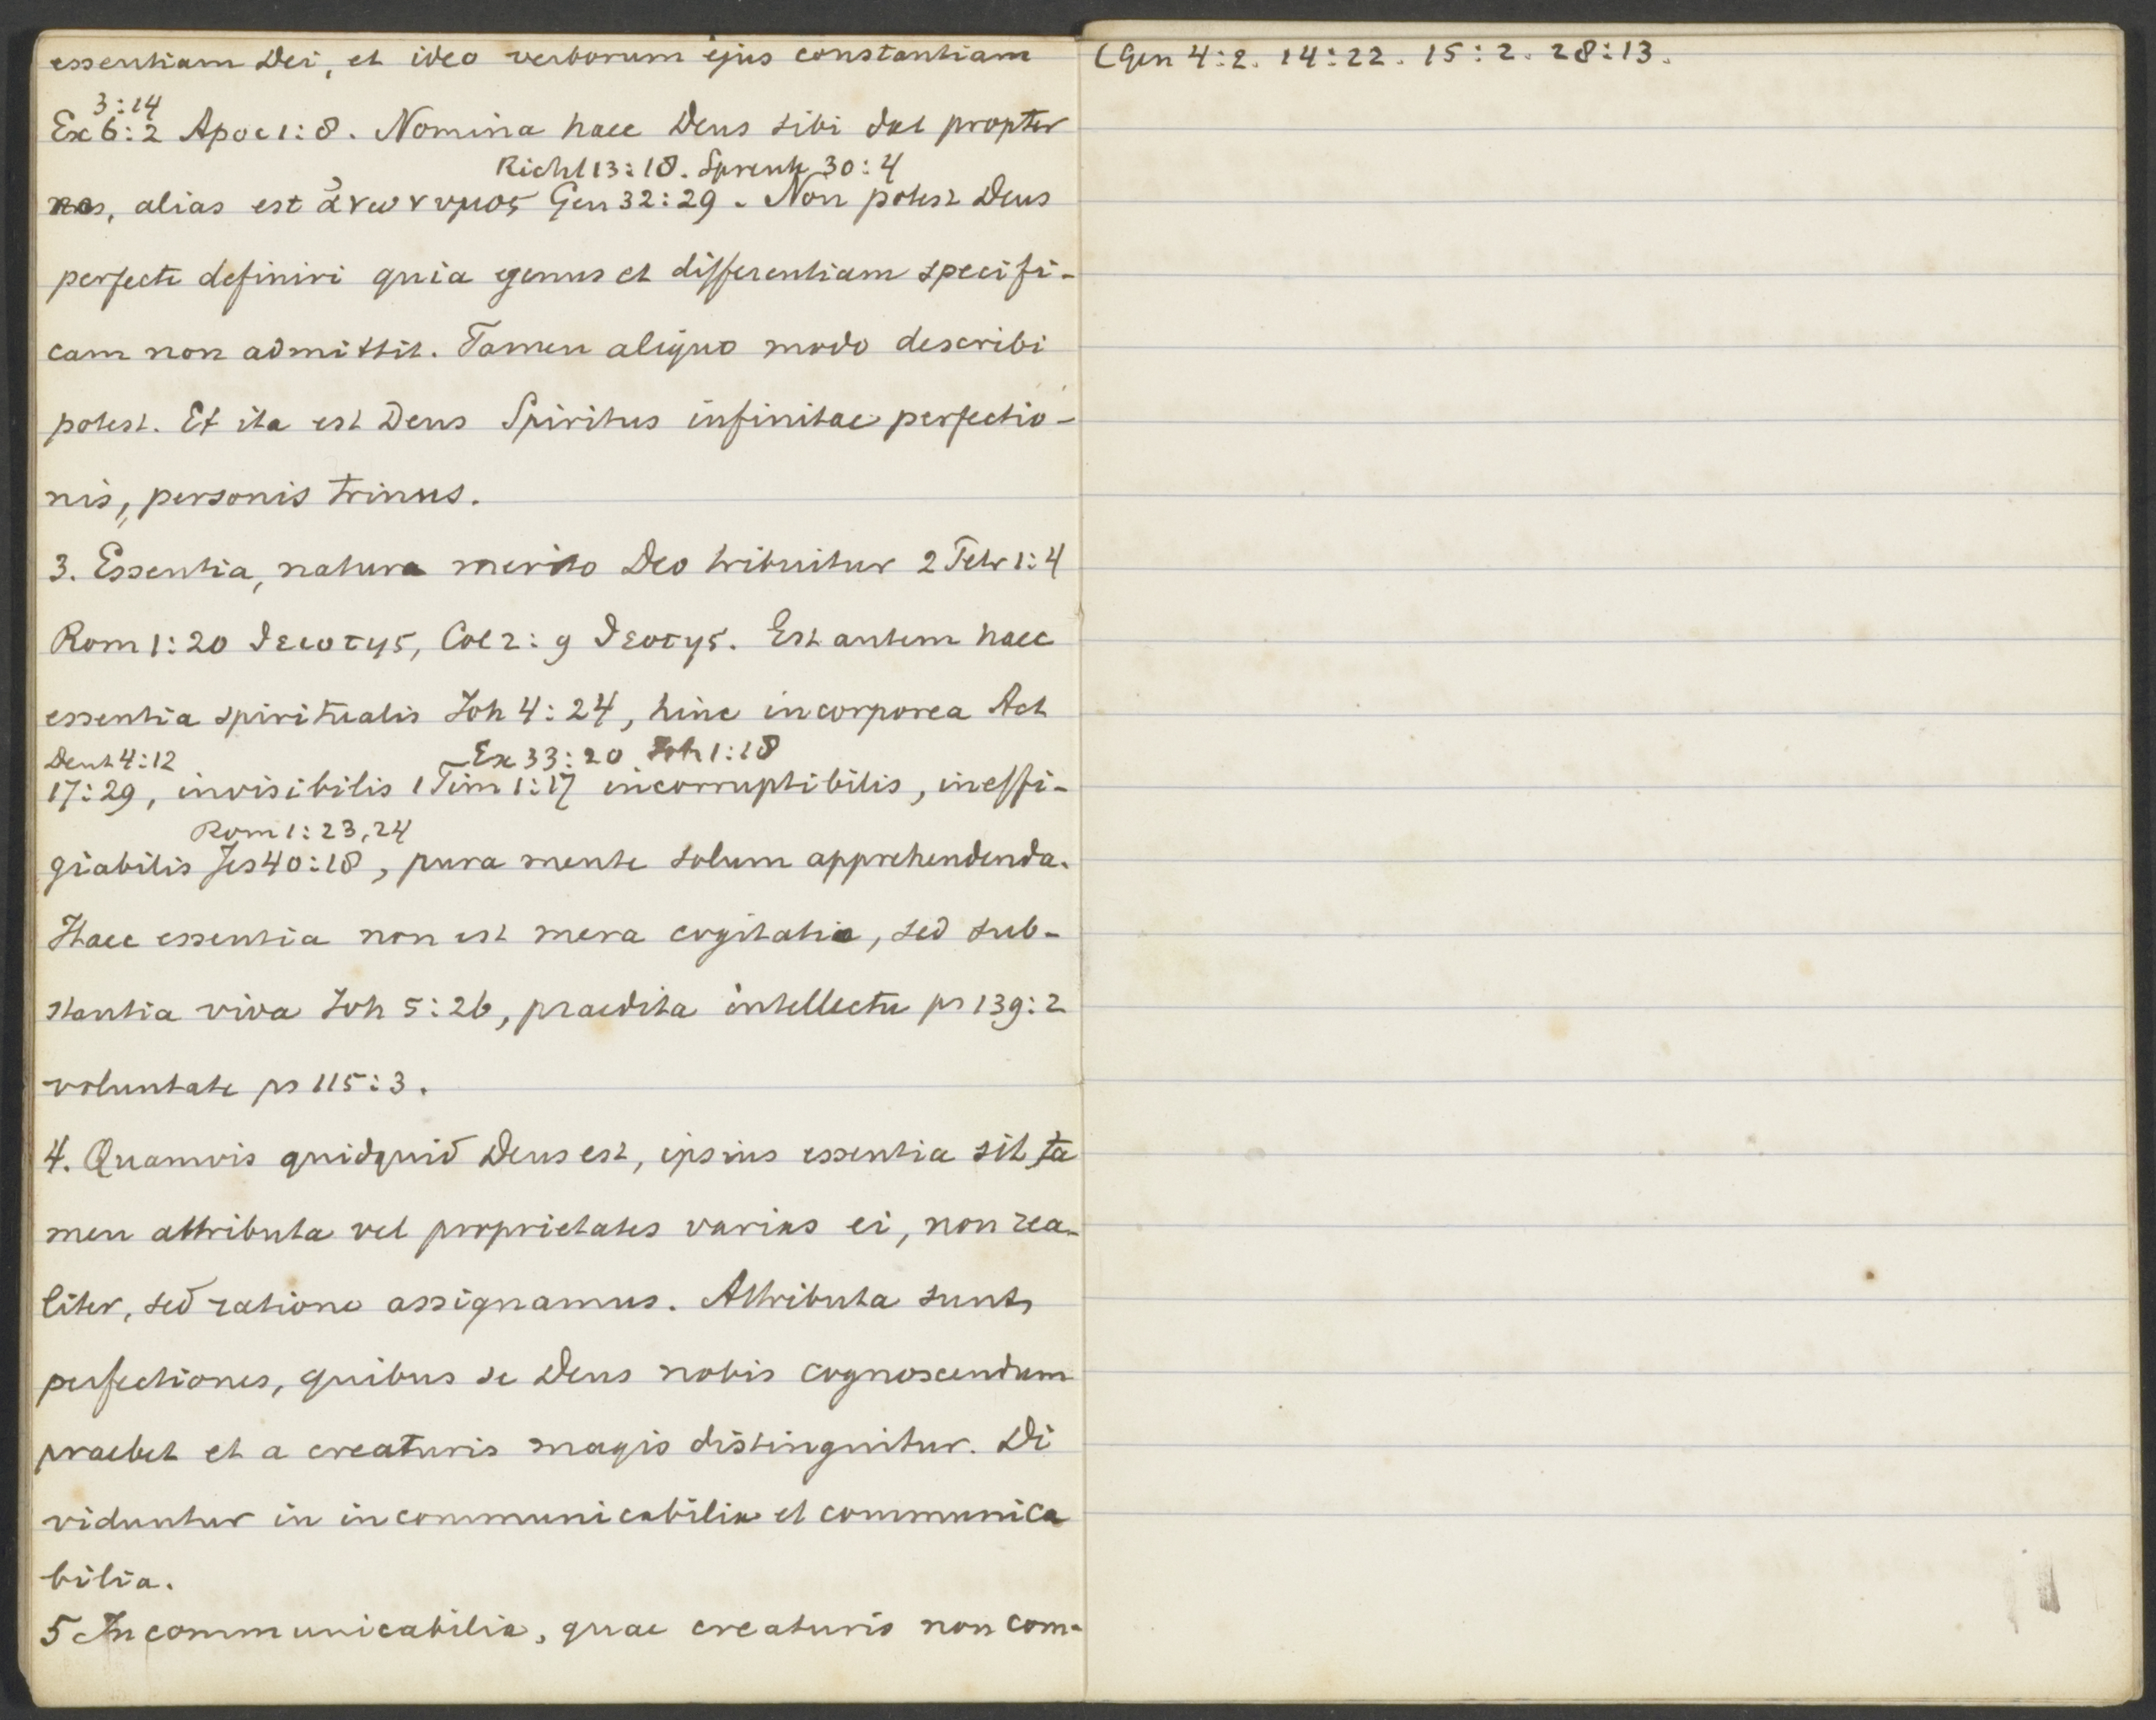 essentiam Dei, et ideo verborum ejus constantiam
3:14
Ex 6:2 Apoc 1:8. Nomina haec Deus sibi dat propter
Richt 13:18. Spreuk 30:4
nos, alias est ἀνωνυμος Gen 32:29. Non potest Deus
perfecte definiri quia genus et differentiam specifi-
cam non admittit. Tamen aliquo modo describi
potest. Et ita est Deus Spiritus infinitae perfectio-
nis, personis trinus.
3. Essentia, natura merito Deo tribuitur 2 Petr 1:4
Rom 1:20 θειοτης, Col 2:9 θεοτης. Est autem haec
essentia spiritualis Joh 4:24, hinc incorporea Act
Deut 4:12 Ex 33:20 Joh 1:18
17:29, invisibilis 1 Tim 1:17 incorruptibilis, ineffi-
Rom 1:23,24
giabilis Jes 40:18, pura mente solum apprehendenda.
Haec essentia non est mera cogitatio, sed sub-
stantia viva Joh 5:26, praedita intellectu ps 139:2
voluntate ps 115:3.
4. Quamvis quidquid Deus est, ipsius essentia sit, ta
men attributa vel proprietates varias ei, non rea-
liter, sed ratione assignamus. Attributa sunt,
perfectiones, quibus se Deus nobis cognoscendum
praebet et a creaturis magis distinguitur. Di
viduntur in incommunicabilia et communica
bilia.
5 Incommunicabilia, quae creaturis non com-
(Gen 4:2. 14:22. 15:2. 28:13.